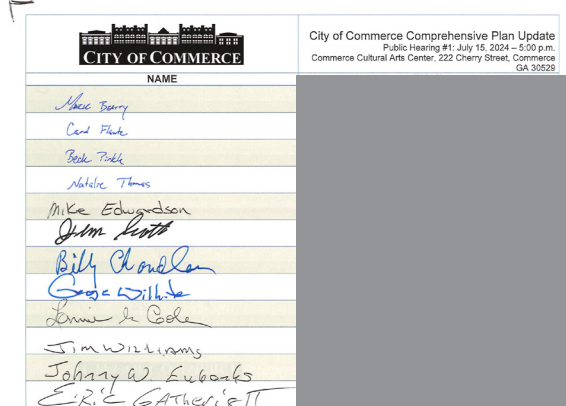 CITY OF COMMERCE
City of Commerce Comprehensive Plan Update
Public Hearing #1: July 15, 2024 – 5:00 p.m.
Commerce Cultural Arts Center, 222 Cherry Street, Commerce
GA 30529
NAME
Beck
Natalie Thomas
Mike Edwardson
Jim Scott
Billy Chandler
George
Cole
Jim Williams
Johnny W. Eubanks
Eric